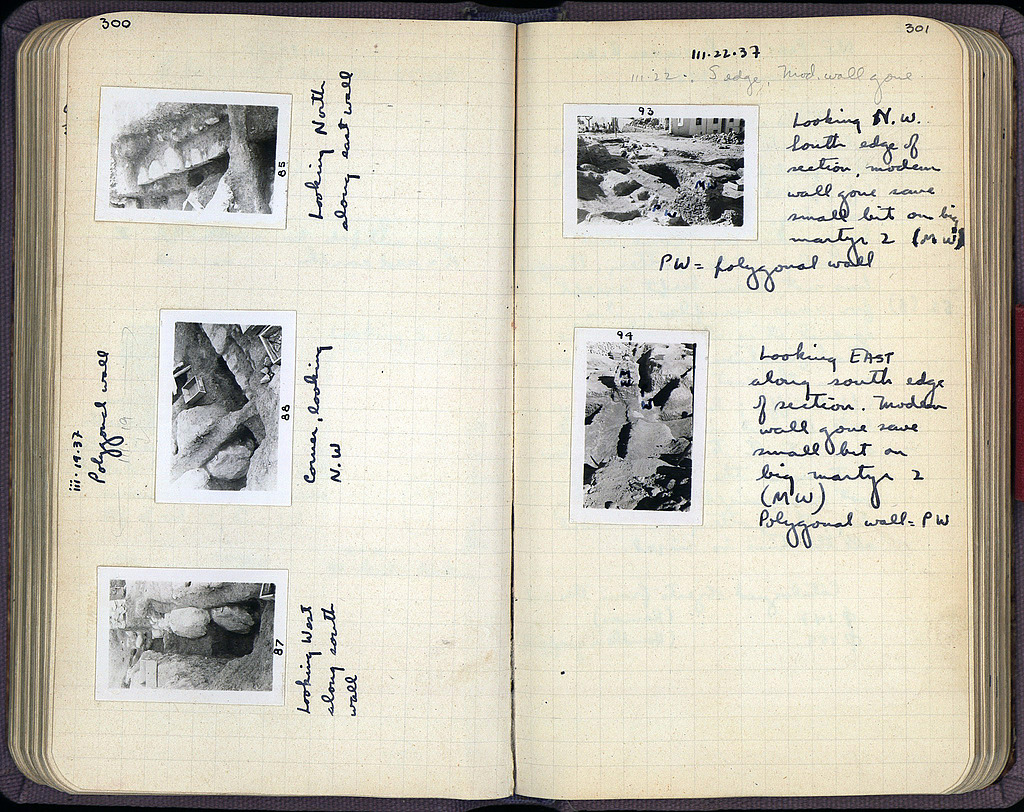 300
iii·19·37
Polygonal wall
85
Looking North
along east wall
88
Corner, looking
N.W
87
Looking West
along south
wall
301
III·22·37
III·22·. S edge, Mod. wall gone
93
MW
PW
Looking N.W.
South edge of
section, modern
wall gone save
small bit on big
martyr 2 (MW)
PW = polygonal wall
94
Looking EAST
along south edge
of section. Modern
wall gone save
small bit on
big martyr 2
(MW)
Polygonal wall = PW